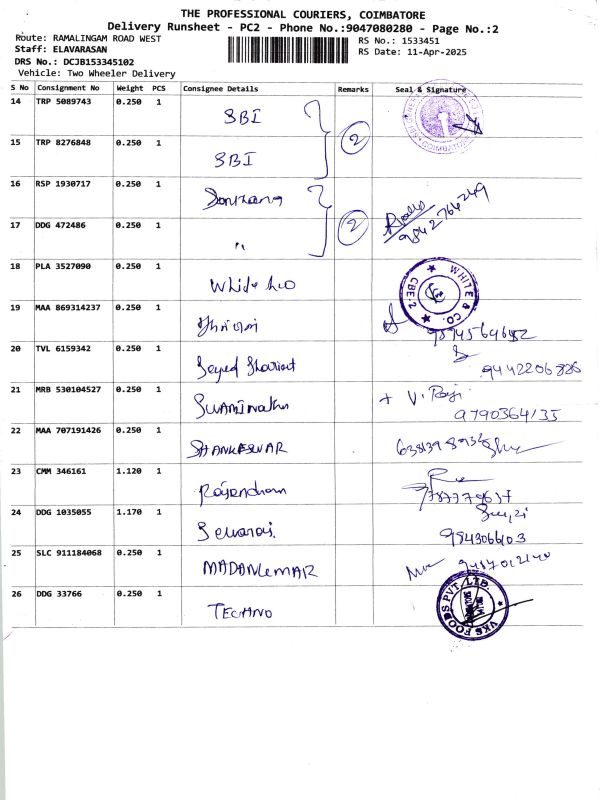 THE PROFESSIONAL COURIERS, COIMBATORE
Delivery Runsheet - PC2 - Phone No.:9047080280 - Page No.:2
Route: RAMALINGAM ROAD WEST
RS No.: 1533451
Staff: ELAVARASAN
RS Date: 11-Apr-2025
DRS No.: DCJB153345102
Vehicle: Two Wheeler Delivery
S No Consignment No Weight PCS Consignee Details Remarks Seal & Signature
14 TRP 5089743 0.250 1 SBI
2
15 TRP 8276848 0.250 1 SBI
16 RSP 1930717 0.250 1
2
17 DDG 472486 0.250 1 "
18 PLA 3527090 0.250 1 White & Co WHITE & CO. CBE 2
19 MAA 869314237 0.250 1
20 TVL 6159342 0.250 1 Seyed Shariat 9442206826
21 MRB 530104527 0.250 1 Swaminathn V. Raji
9790364135
22 MAA 707191426 0.250 1 SHANKESWAR
23 CMM 346161 1.120 1 Rajendharn
24 DDG 1035055 1.170 1 Selvaraj
9843066103
25 SLC 911184068 0.250 1 MADANKUMAR 9487012140
26 DDG 33766 0.250 1 TECHNO VKS FOODS PVT. LTD